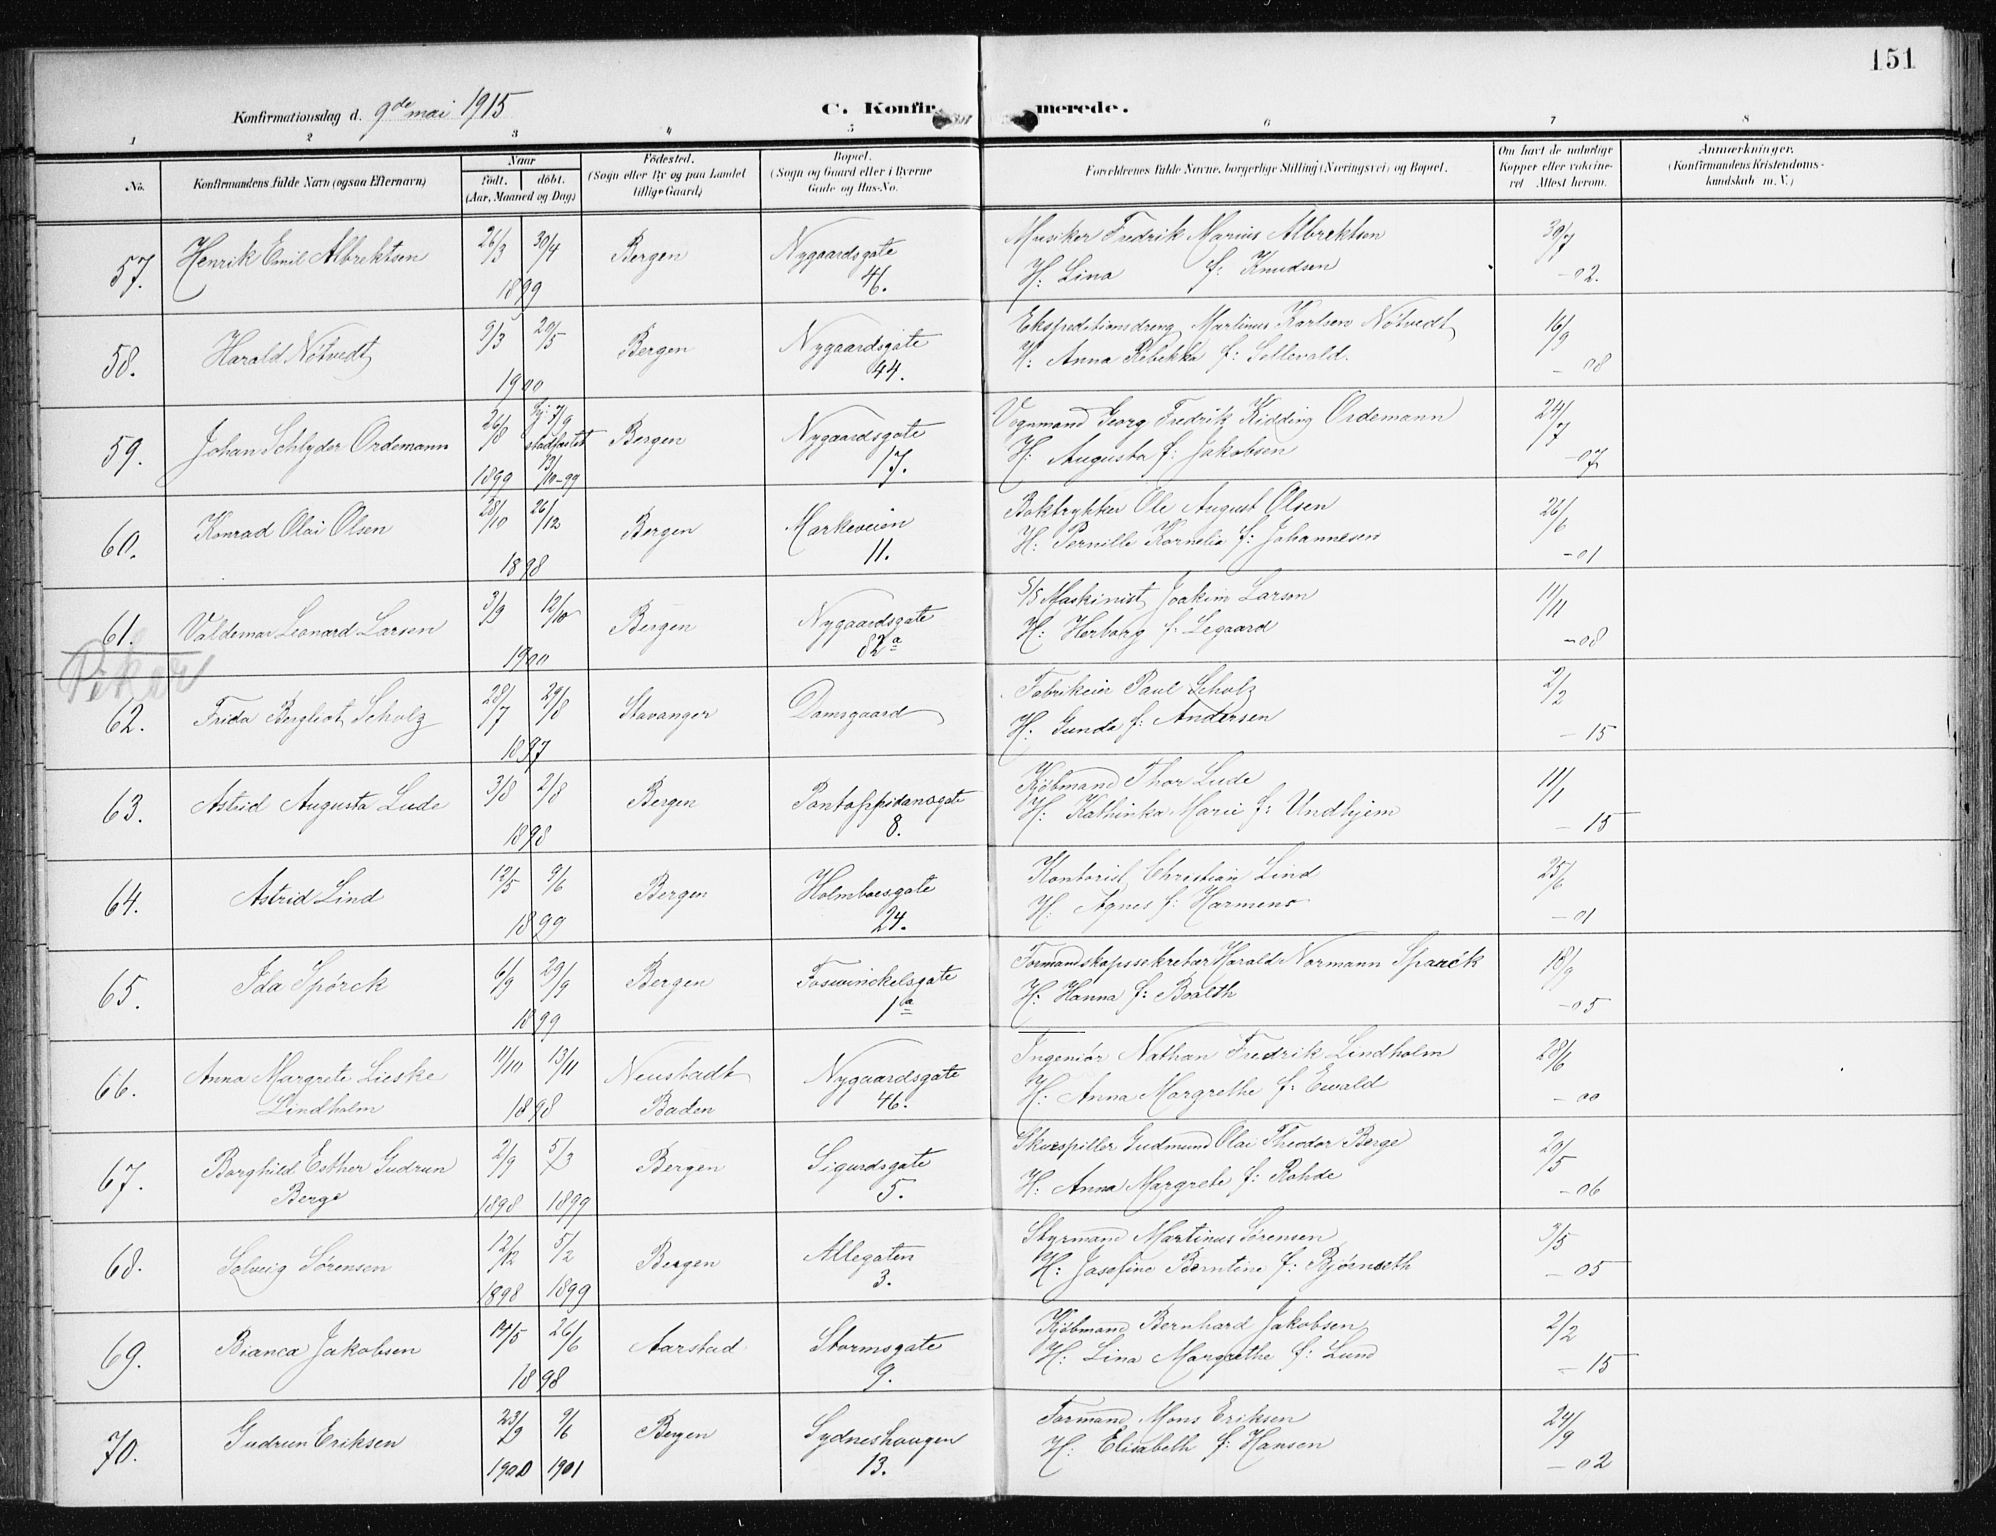 151
Konfirmationsdag d. 9de mai 1915
C. Konfirmerede.
1 2 3 4 5 6 7 8
No.
Konfirmandens fulde Navn (ogsaa Efternavn)
Naar
født. døbt.
(Aar, Maaned og Dag)
Fødested.
(Sogn eller By og paa Landet
tillige Gaard)
Bopæl.
(Sogn og Gaard eller i Byerne
Gade og Hus-No.
Forældrenes fulde Navne, borgerlige Stilling (Næringsvei) og Bopæl.
Om havt de naturlige
Kopper eller vakcine-
ret Attest herom.
Anmærkninger.
(Konfirmandens Kristendoms-
kundskab m. V.)
57. Henrik Emil Albrektsen 26/3 30/4 1899 Bergen Nygaardsgate 46.
Musiker Fredrik Marius Albrektsen
H: Lina f: Knudsen
30/7 -02.
58. Harald Nötvedt 9/3 20/5 1900 Bergen Nygaardsgate 44.
Ekspeditionsdreng Martinus Karlsen Nötvedt
H: Anna Rebekka f: Sellevold.
16/9 -08
59. Johan Schlyder Ordemann 26/8 1899 Hj: 7/9 stadfæstet 13/10-99 Bergen Nygaardsgate 17.
Vognmand Georg Fredrik Kidding Ordemann
H: Augusta f: Jakobsen
24/7 -07
60. Konrad Olai Olsen 28/10 26/12 1898 Bergen Markeveien 11.
Boktrykker Ole August Olsen
H: Pernille Kornelia f: Johannesen
26/6 -01
61. Valdemar Leonard Larsen 3/9 12/10 1900 Bergen Nygaardsgate 82a
S/S Maskinist Joakim Larsen
H: Herborg f: Legaard
11/11 -08
62. Frida Bergliot Scholz 28/7 29/8 1897 Stavanger Damsgaard
Fabrikeier Paul Scholz
H: Gunda f: Andersen
2/2 -15
63. Astrid Augusta Lude 3/8 2/8 1898 Bergen Pontoppidansgate 8.
Kjøbmand Thor Lude
H: Kathinka Marie f: Undhjem
11/1 -15
64. Astrid Lind 12/5 9/6 1899 Bergen Holmboesgate 24.
Kontorist Christian Lind
H: Agnes f: Harmens
25/6 -01
65. Ida Spörck 6/9 29/9 1899 Bergen Foswinckelsgate 1a
Formandskapssekretær Harald Normann Sparck
H: Hanna f: Boalth
18/9 -05
66. Anna Margrete Lieske
Lindholm 11/10 13/11 1898 Neustadt Baden Nygaardsgate 46.
Ingeniør Nathan Fredrik Lindholm
H: Anna Margrethe f: Ewald
28/6 -00
67. Borghild Esther Gudrun
Berge 2/9 1898 5/3 1899 Bergen Sigurdsgate 5.
Skuespiller Gudmund Olai Theodor Berge
H: Anna Margrete f: Rohde
20/5 -06
68. Solveig Sørensen 12/12 1898 5/2 1899 Bergen Allegaten 3.
Styrmand Martinus Sørensen
H: Josefine Berntine f: Bjørnseth
3/5 -05
69. Bianca Jakobsen 14/5 26/6 1898 Aarstad Stormsgate 9.
Kjøbmand Bernhard Jakobsen
H: Lina Margrethe f: Lund
2/2 -15
70. Gudrun Eriksen 23/9 1900 9/6 1901 Bergen Sydneshaugen 13.
Formand Mons Eriksen
H: Elisabeth f: Hansen
24/9 -02